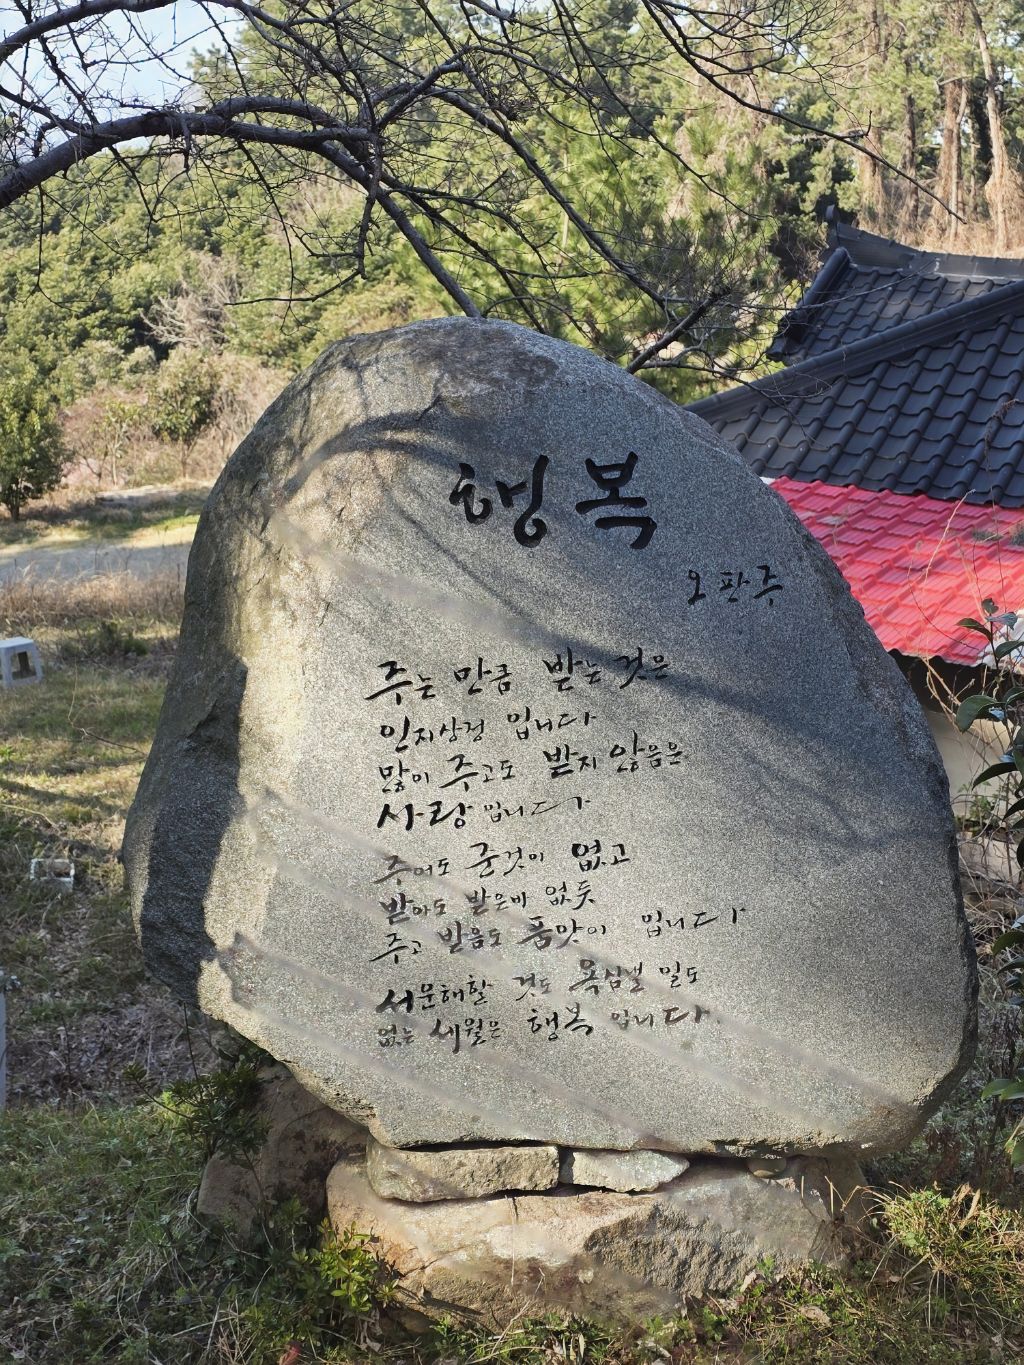 행복
오판주
주는 만큼 받는 것은
인지상정 입니다
많이 주고도 받지 않음은
사랑 입니다
주어도 준것이 없고
받아도 받은바 없듯
주고 받음도 품앗이 입니다
서운해할 것도 욕심낼 일도
없는 세월은 행복 입니다.